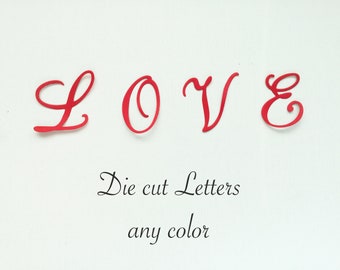 L O V E
Die cut Letters
any color